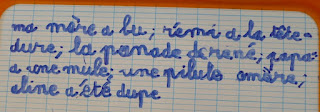 ma mère a bu; rémi a la tête
dure; la panade de rené; papa
a une mule; une pilule amère;
aline a été dupe